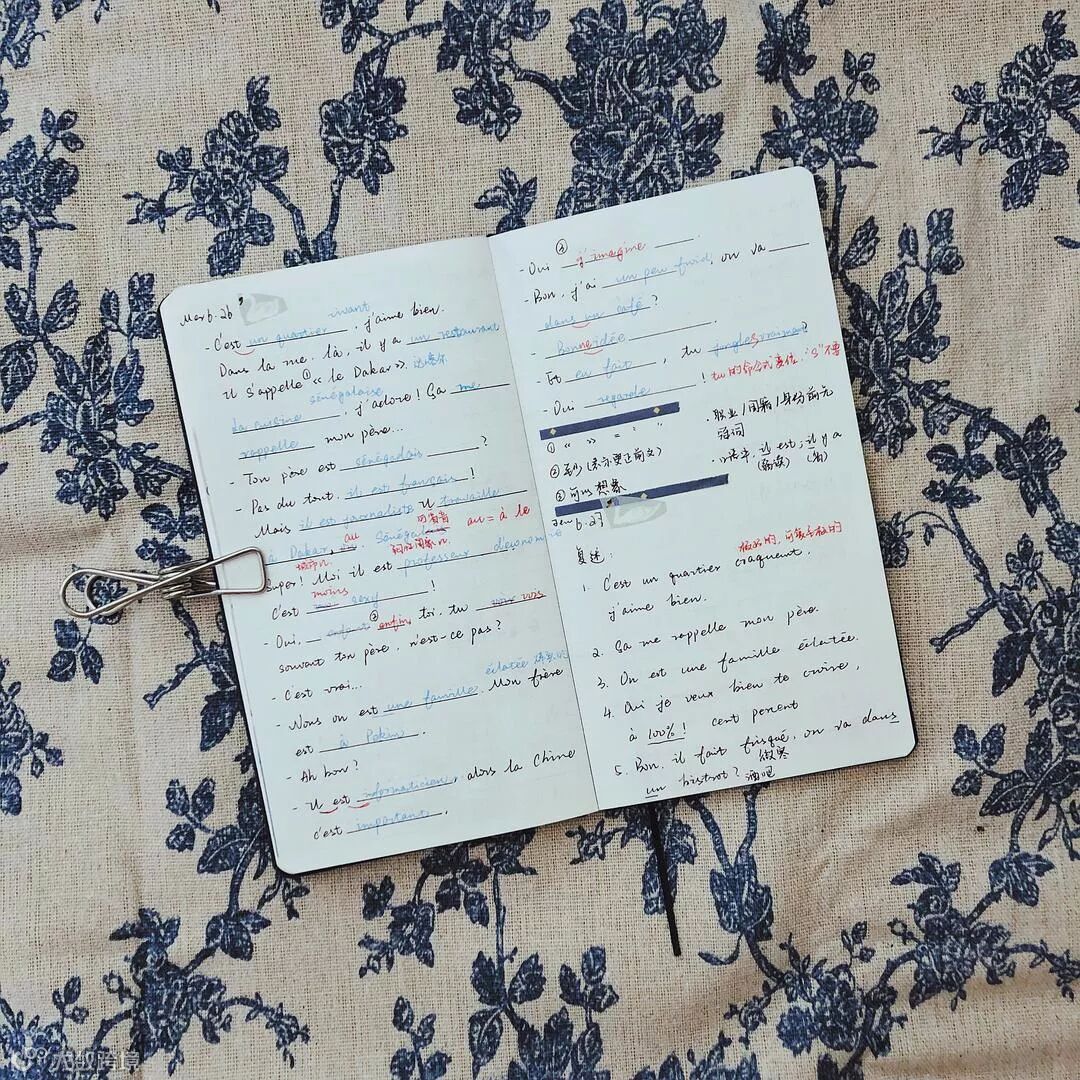 Mar 6.26
vivant
- C'est un quartier, j'aime bien.
Dans la rue, là, il y a un restaurant
il s'appelle ① « le Dakar». 达喀尔
sénégalaise
La cuisine, j'adore! Ça me
rappelle mon père...
- Ton père est sénégalais ?
- Pas du tout, il est français !
Mais il est journaliste. Il travaille
à Dakar, au Sénégal
au = à le
城市n.
Super! Moi il est professeur d'économie
moins
C'est sexy !
- Oui, ② enfin, toi, tu
souvant ton père, n'est-ce pas?
- C'est vrai...
éclatée
- Nous on est une famille. Mon frère
est à Pekin.
- Ah bon?
- Il est informaticien, alors la Chine
c'est important.
③
- Oui j'imagine
- Bon, j'ai un peu froid, on va
dans un café ?
- Bonne idée
- Et en fait, tu vraiment?
- Oui regarde ! tu 的命令式变位 "s" 不要
① « » = : "
· 职业/国籍/身份前无
冠词
②至少(表示更正前文)
· 口语中, il est; il y a
③可以想象
Jeu 6.27
复述:
极品的, 可象手板的
1. C'est un quartier craquent,
j'aime bien.
2. Ça me rappelle mon père.
3. On est une famille éclatée.
4. Oui je veux bien te croire,
à 100%! cent percent
5. Bon, il fait frisqué, on va dans
微寒
un bistrot? 酒吧
大数跨境